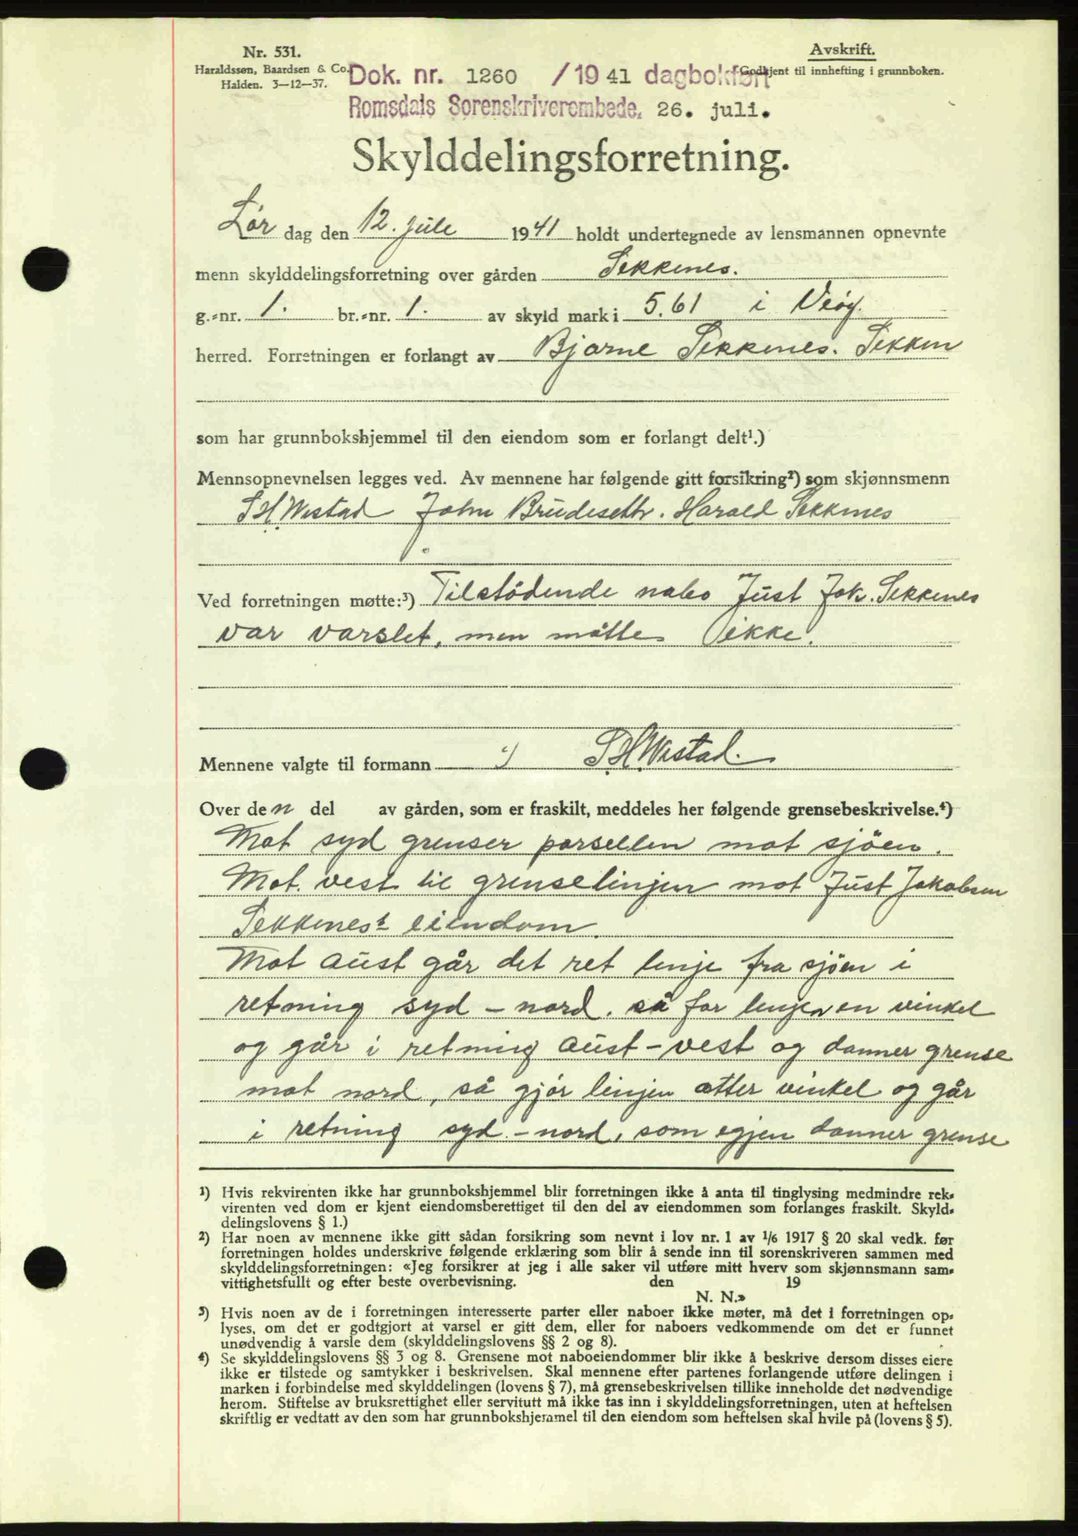 Nr. 531.
Haraldssøn, Baardsen & Co.
Halden. 3—12—37.
Avskrift.
Godkjent til innhefting i grunnboken.
Dok. nr. 1260 / 19 41 dagbokført
Romsdals Sorenskriverembede, 26. juli.
Skylddelingsforretning.
Lør dag den 12. jule 19 41 holdt undertegnede av lensmannen opnevnte
menn skylddelingsforretning over gården Sekkenes.
g.-nr. 1. br.-nr. 1. av skyld mark i 5.61 i Veøy
herred. Forretningen er forlangt av Bjarne Sekkenes. Sekken
som har grunnbokshjemmel til den eiendom som er forlangt delt¹.)
Mennsopnevnelsen legges ved. Av mennene har følgende gitt forsikring²) som skjønnsmenn
S H Westad John Brudeseth. Harald Sekknes
Ved forretningen møtte:³) Tilstødende nabo Just Jak. Sekkenes
var varslet, men møtte ikke.
Mennene valgte til formann S. H. Westad.
Over den del av gården, som er fraskilt, meddeles her følgende grensebeskrivelse.⁴)
Mot syd grenser parsellen mot sjöen.
Mot vest til grenselinjen mot Just Jakobsen
Sekkenes's eiendom.
Mot aust går det ret linje fra sjöen i
retning syd – nord. så får linjen en vinkel
og går i retning aust – vest og danner grense
mot nord, så gjör linjen atter vinkel og går
i retning syd – nord, som egjen danner grense
¹) Hvis rekvirenten ikke har grunnbokshjemmel blir forretningen ikke å anta til tinglysing medmindre rek-
virenten ved dom er kjent eiendomsberettiget til den del av eiendommen som forlanges fraskilt. Skyld-
delingslovens § 1.)
²) Har noen av mennene ikke gitt sådan forsikring som nevnt i lov nr. 1 av 1/6 1917 § 20 skal vedk. før
forretningen holdes underskrive følgende erklæring som blir å sende inn til sorenskriveren sammen med
skylddelingsforretningen: «Jeg forsikrer at jeg i alle saker vil utføre mitt hverv som skjønnsmann sam-
vittighetsfullt og efter beste overbevisning. den 19
N. N.»
³) Hvis noen av de i forretningen interesserte parter eller naboer ikke møter, må det i forretningen op-
lyses, om det er godtgjort at varsel er gitt dem, eller for naboers vedkommende om det er funnet
unødvendig å varsle dem (skylddelingslovens §§ 2 og 8).
⁴) Se skylddelingslovens §§ 3 og 8. Grensene mot naboeiendommer blir ikke å beskrive dersom disses eiere
ikke er tilstede og samtykker i beskrivelsen. Skal mennene efter partenes forlangende utføre delingen i
marken i forbindelse med skylddelingen (lovens § 7), må grensebeskrivelsen tillike inneholde det nødvendige
herom. Stiftelse av bruksrettighet eller servitutt må ikke tas inn i skylddelingsforretningen, uten at heftelsen
skriftlig er vedtatt av den som har grunnbokshjemmel til den eiendom som heftelsen skal hvile på (lovens § 5).